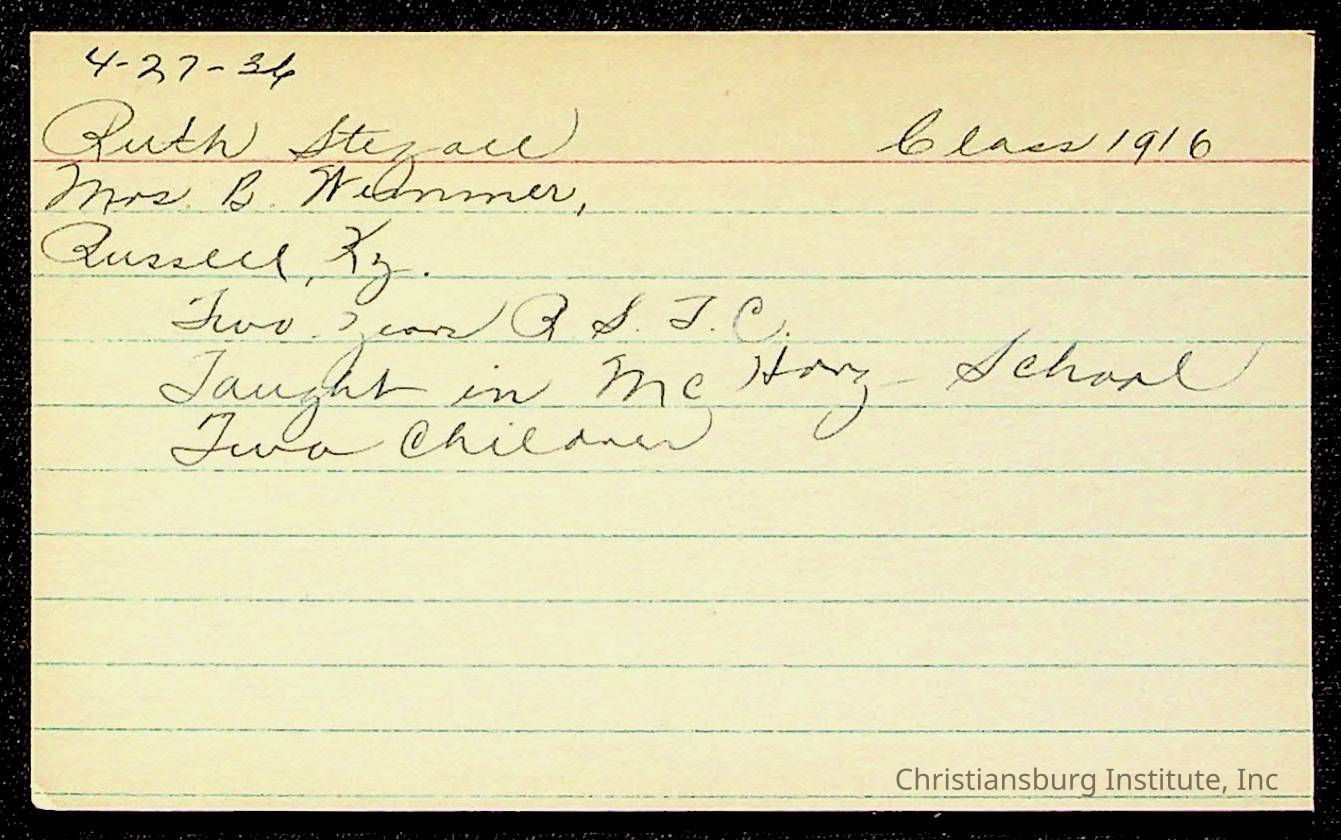 4-27-36
Ruth Stegall Class 1916
Mrs. B. Wimmer,
Russell, Ky.
Two years R S. T. C.
Taught in Mc Harg School
Two Children
Christiansburg Institute, Inc